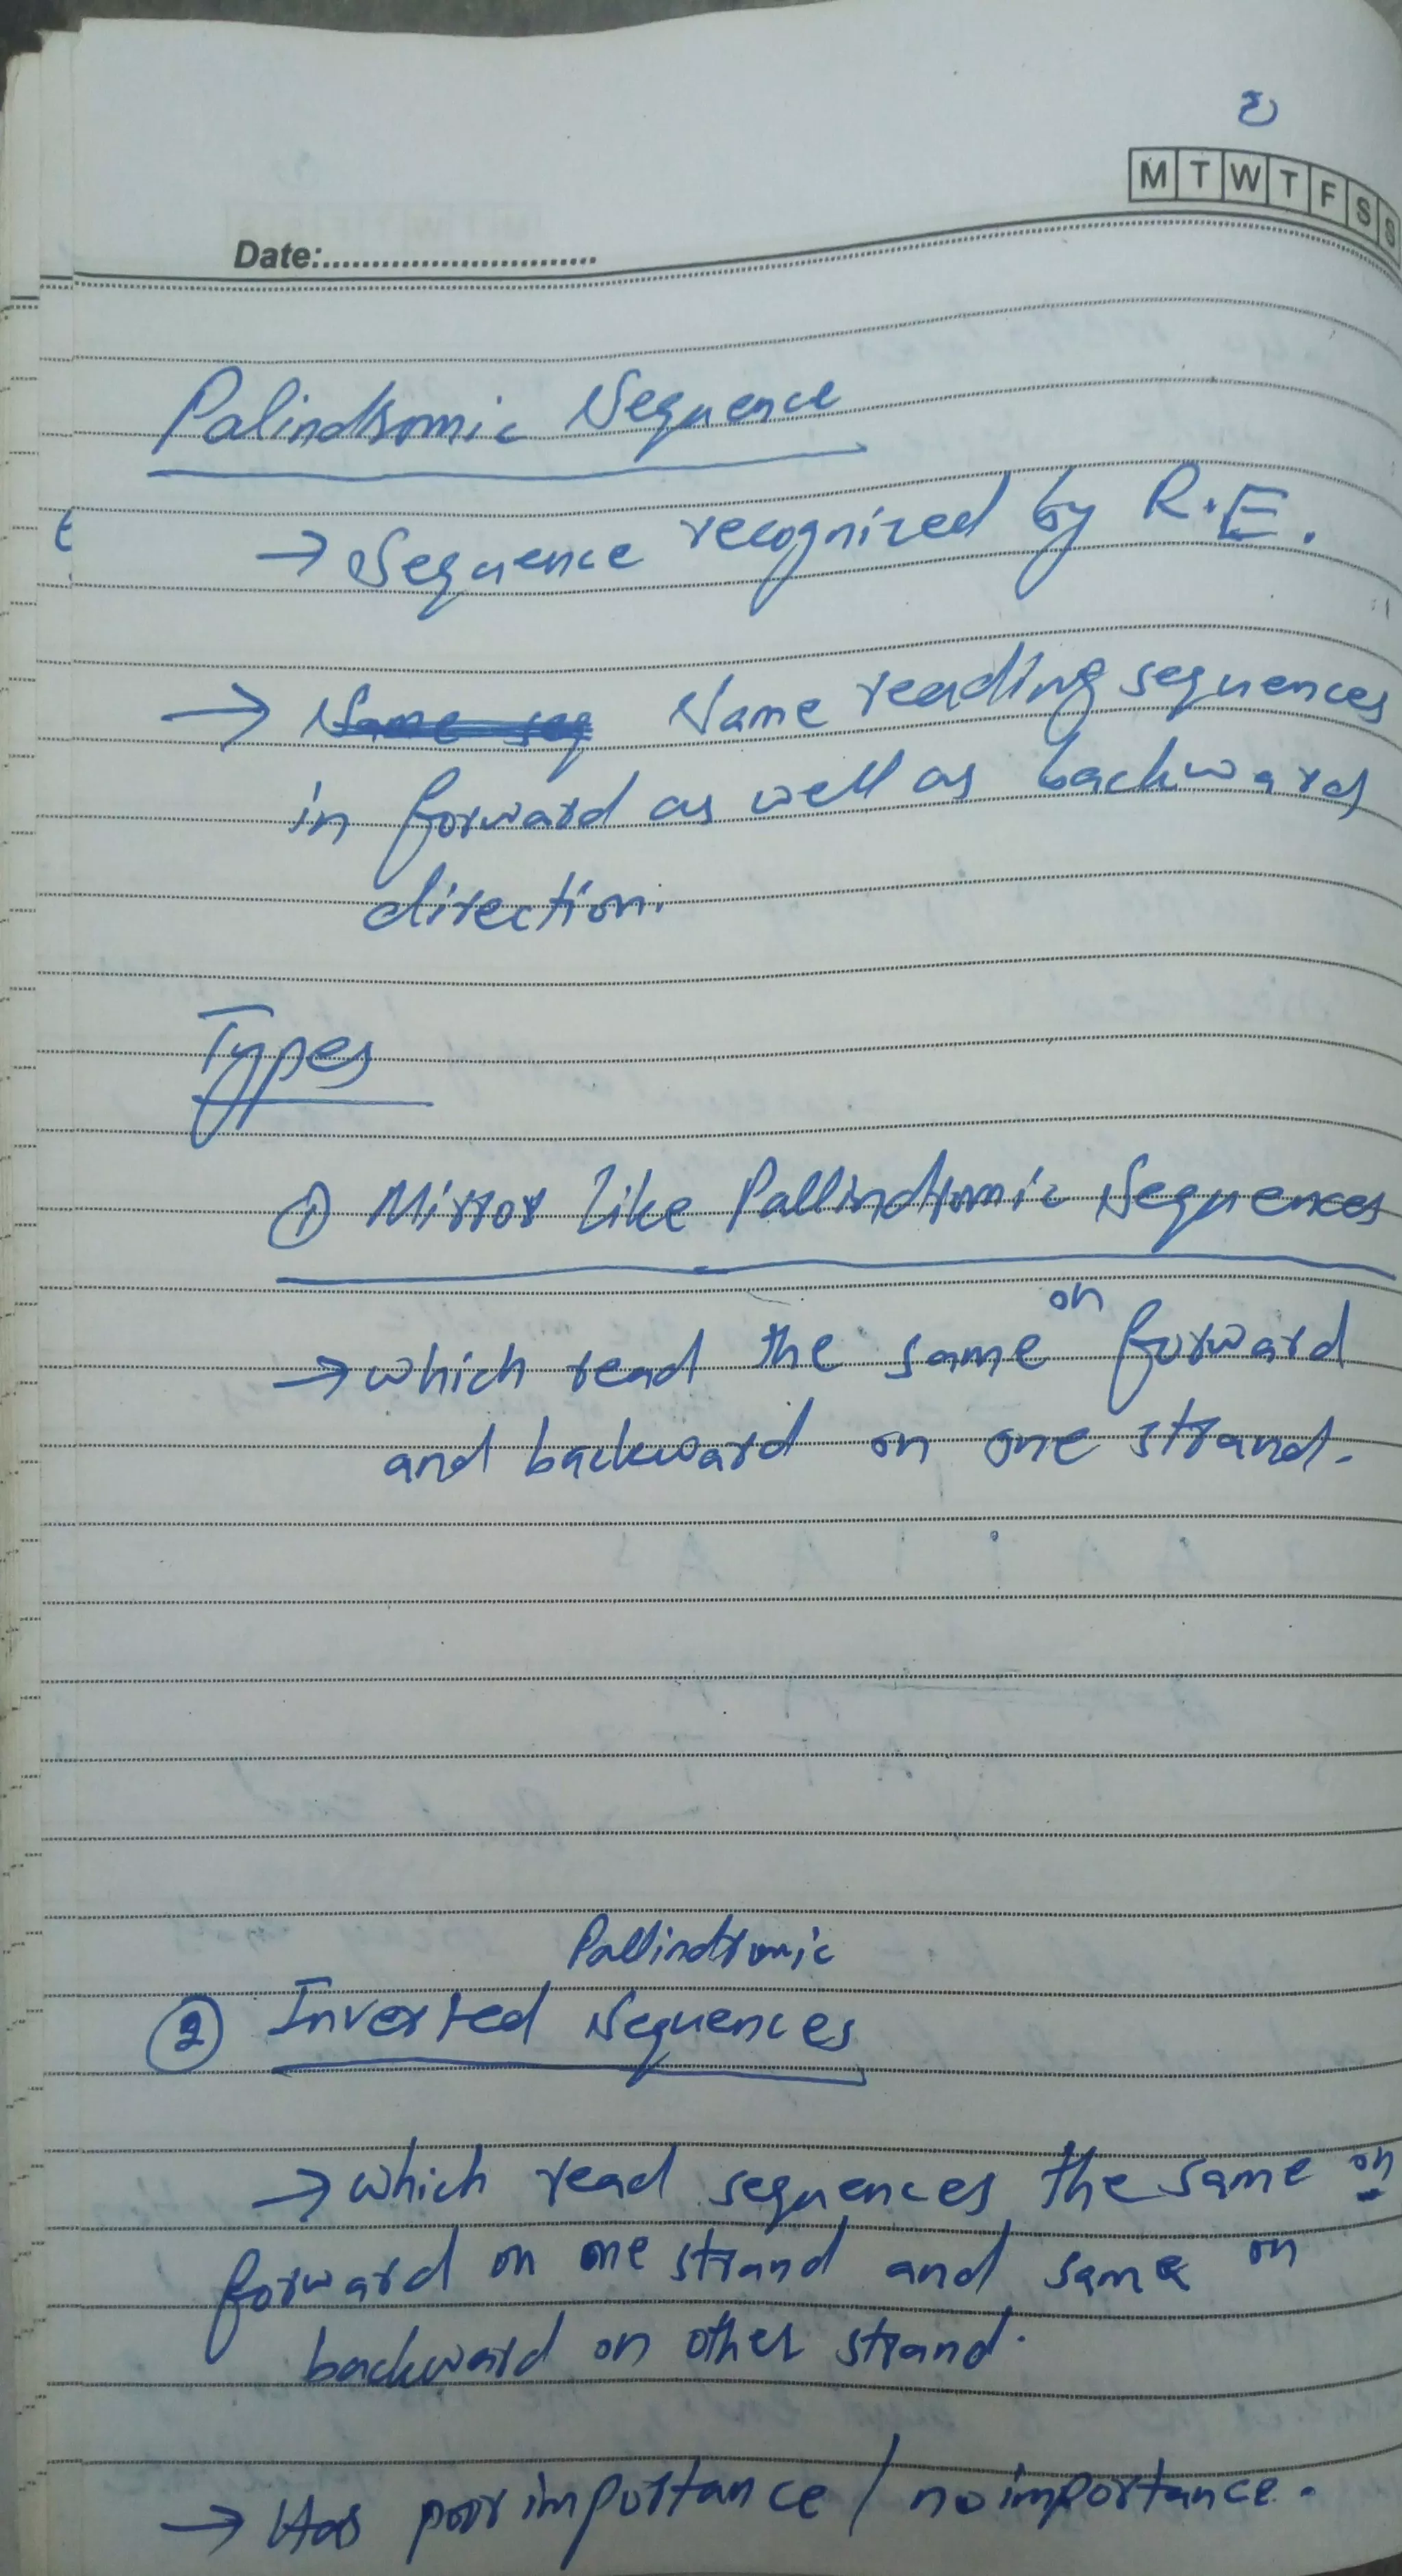 M T W T F S S
Date:
Palindromic Sequence
→ Sequence recognized by R.E.
→ Same reading sequences
in forward as well as backward
direction.
Types
① Mirror like Pallindromic Sequences
on
→ which read the same forward
and backward on one strand.
Pallindromic
② Inverted Sequences
→ which read sequences the same on
forward on one strand and same on
backward on other strand.
→ Has poor importance / no importance.